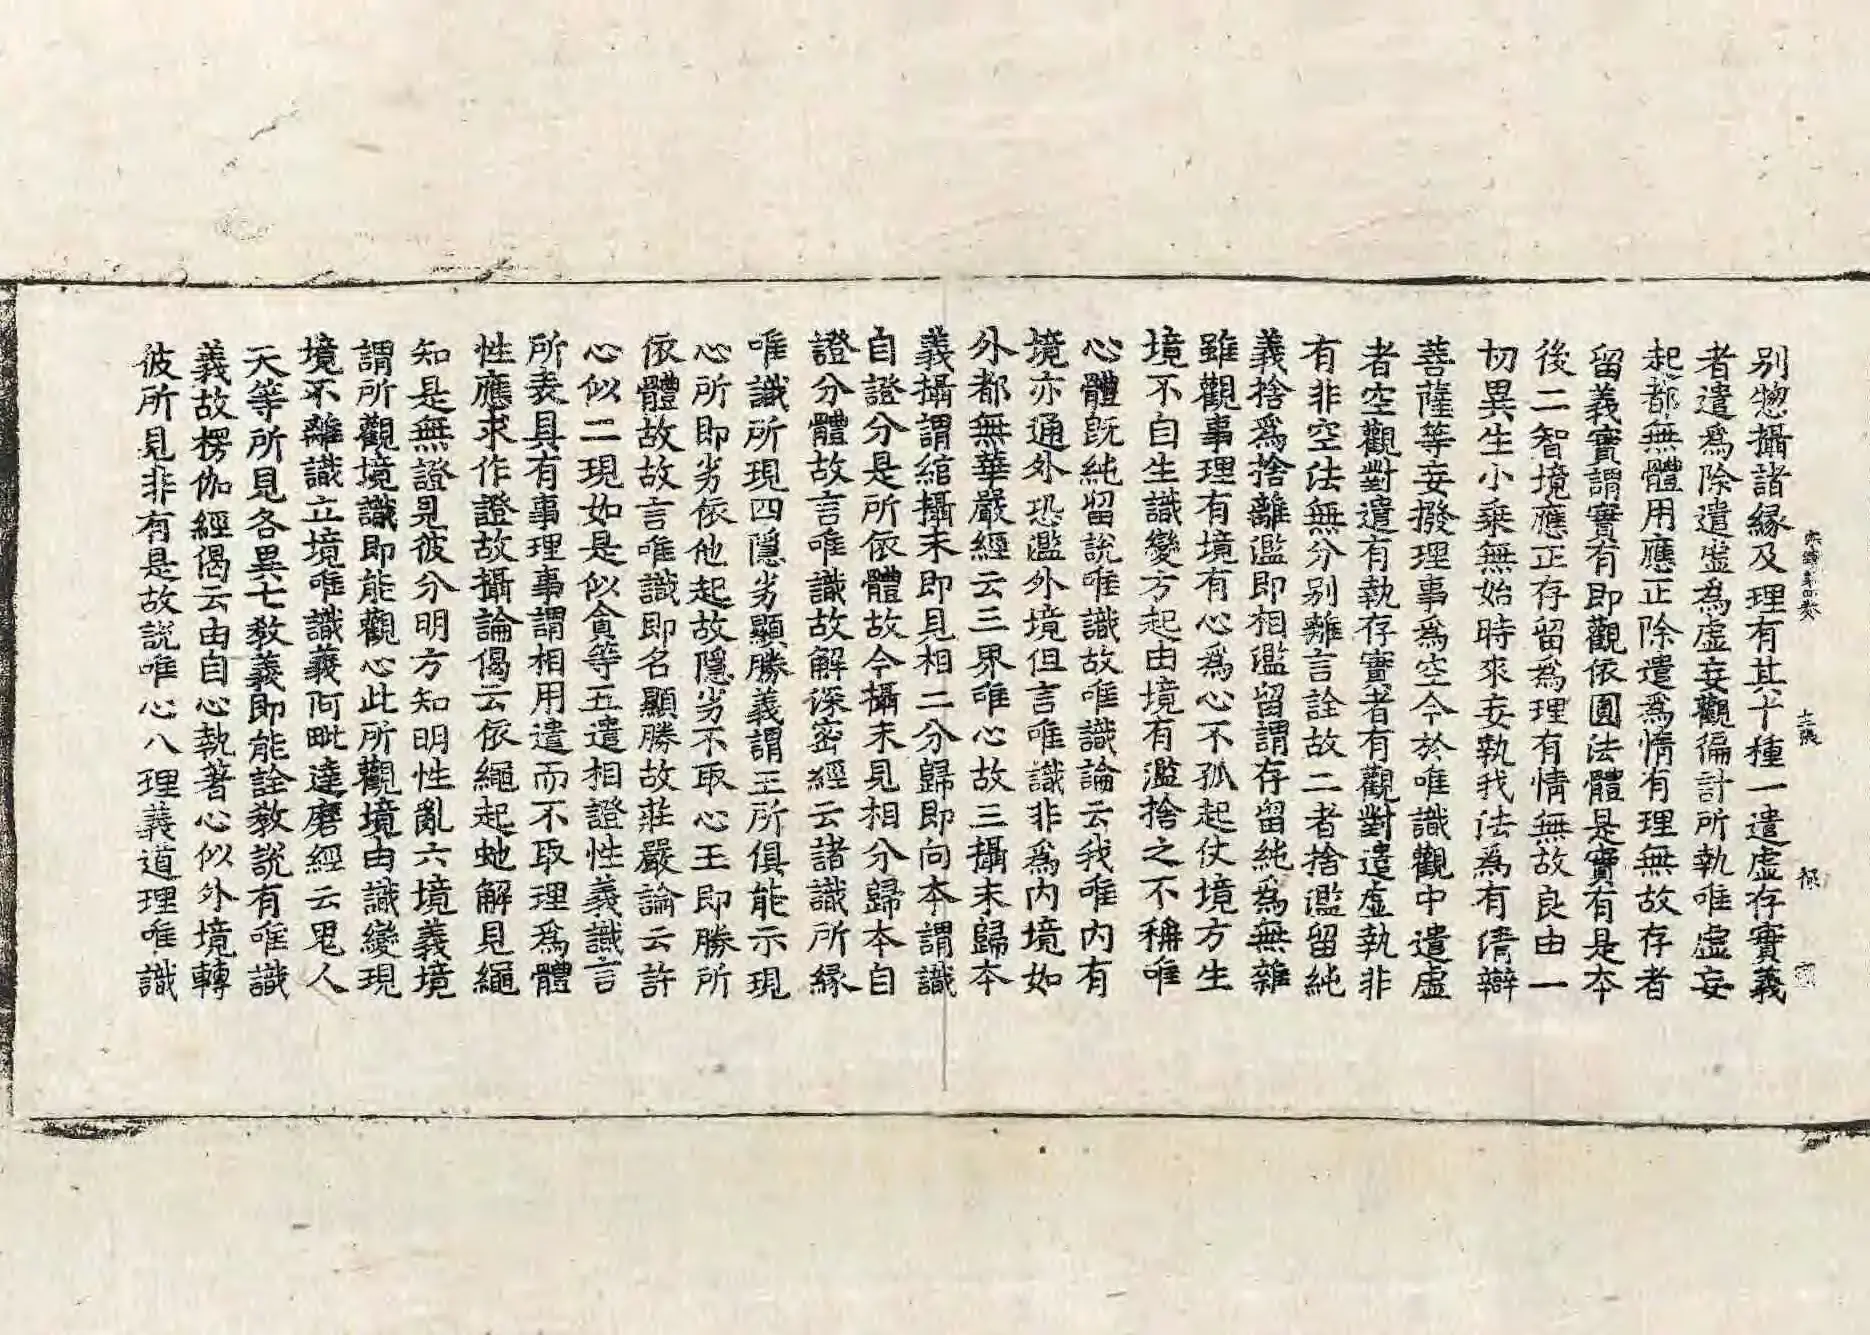 十三張
祿
別惣攝諸縁及理有其十種一遣虛存實義
者遣爲除遣虛為虛妄觀徧計所執唯虛妄
起都無體用應正除遣爲情有理無故存者
留義實謂實有即觀依圓法體是實有是本
後二智境應正存留為理有情無故良由一
切異生小乘無始時來妄執我法為有清辯
菩薩等妄撥理事爲空今於唯識觀中遣虛
者空觀對遣有執存實者有觀對遣虛執非
有非空法無分別離言詮故二者捨濫留純
義捨爲捨離濫即相濫留謂存留純為無雜
雖觀事理有境有心爲心不孤起仗境方生
境不自生識變方起由境有濫捨之不稱唯
心體旣純留說唯識故唯識論云我唯內有
境亦通外恐濫外境但言唯識非爲內境如
外都無華嚴經云三界唯心故三攝末歸本
義攝謂綰攝末即見相二分歸即向本謂識
自證分是所依體故今攝末見相分歸本自
證分體故言唯識故解深密經云諸識所縁
唯識所現四隱劣顯勝義謂王所俱能示現
心所即劣依他起故隱劣不取心王即勝所
依體故故言唯識即名顯勝故莊嚴論云許
心似二現如是似貪等五遣相證性義識言
所表具有事理事謂相用遣而不取理爲體
性應求作證故攝論偈云依繩起虵解見繩
知是無證見彼分明方知明性亂六境義境
謂所觀境識即能觀心此所觀境由識變現
境不離識立境唯識義阿毗達磨經云鬼人
天等所見各異七教義即能詮教說有唯識
義故楞伽經偈云由自心執著心似外境轉
彼所見非有是故說唯心八理義道理唯識